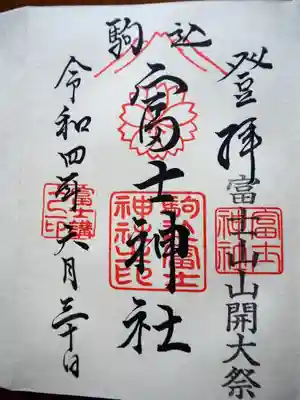 駒込
登拝
富士山山開大祭
富士神社
富士神社
駒込富士神社之印
令和四年六月三十日